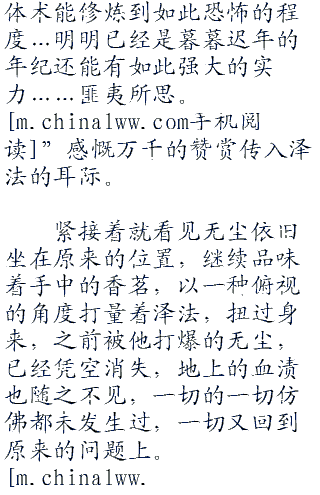 体术能修炼到如此恐怖的程
度…明明已经是暮暮迟年的
年纪还能有如此强大的实
力……匪夷所思。
[m.chinalww.com手机阅
读]”感慨万千的赞赏传入泽
法的耳际。
紧接着就看见无尘依旧
坐在原来的位置，继续品味
着手中的香茗，以一种俯视
的角度打量着泽法，扭过身
来，之前被他打爆的无尘，
已经凭空消失，地上的血渍
也随之不见，一切的一切仿
佛都未发生过，一切又回到
原来的问题上。
[m.chinalww.